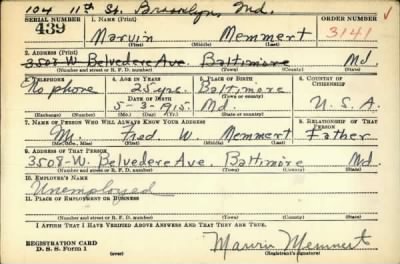 104 11th St. Brooklyn, Md.
SERIAL NUMBER 1. NAME (Print) ORDER NUMBER
439 Marvin Memmert 3141
(First) (Middle) (Last)
2. ADDRESS (Print)
3508-W. Belvedere Ave. Baltimore Md.
(Number and street or R. F. D. number) (Town) (County) (State)
3. TELEPHONE 4. AGE IN YEARS 5. PLACE OF BIRTH 6. COUNTRY OF CITIZENSHIP
No phone 25 yrs. Baltimore
DATE OF BIRTH (Town or county)
5-3-1915. Md. U.S.A.
(Exchange) (Number) (Mo.) (Day) (Yr.) (State or country)
7. NAME OF PERSON WHO WILL ALWAYS KNOW YOUR ADDRESS 8. RELATIONSHIP OF THAT PERSON
Mr. Fred W. Memmert Father
(Mr., Mrs., Miss) (First) (Middle) (Last)
9. ADDRESS OF THAT PERSON
3508-W. Belvedere Ave. Baltimore Md.
(Number and street or R. F. D. number) (Town) (County) (State)
10. EMPLOYER'S NAME
Unemployed
11. PLACE OF EMPLOYMENT OR BUSINESS
(Number and street or R. F. D. number) (Town) (County) (State)
I AFFIRM THAT I HAVE VERIFIED ABOVE ANSWERS AND THAT THEY ARE TRUE.
REGISTRATION CARD Marvin Memmert
D. S. S. Form 1 (Registrant's signature)